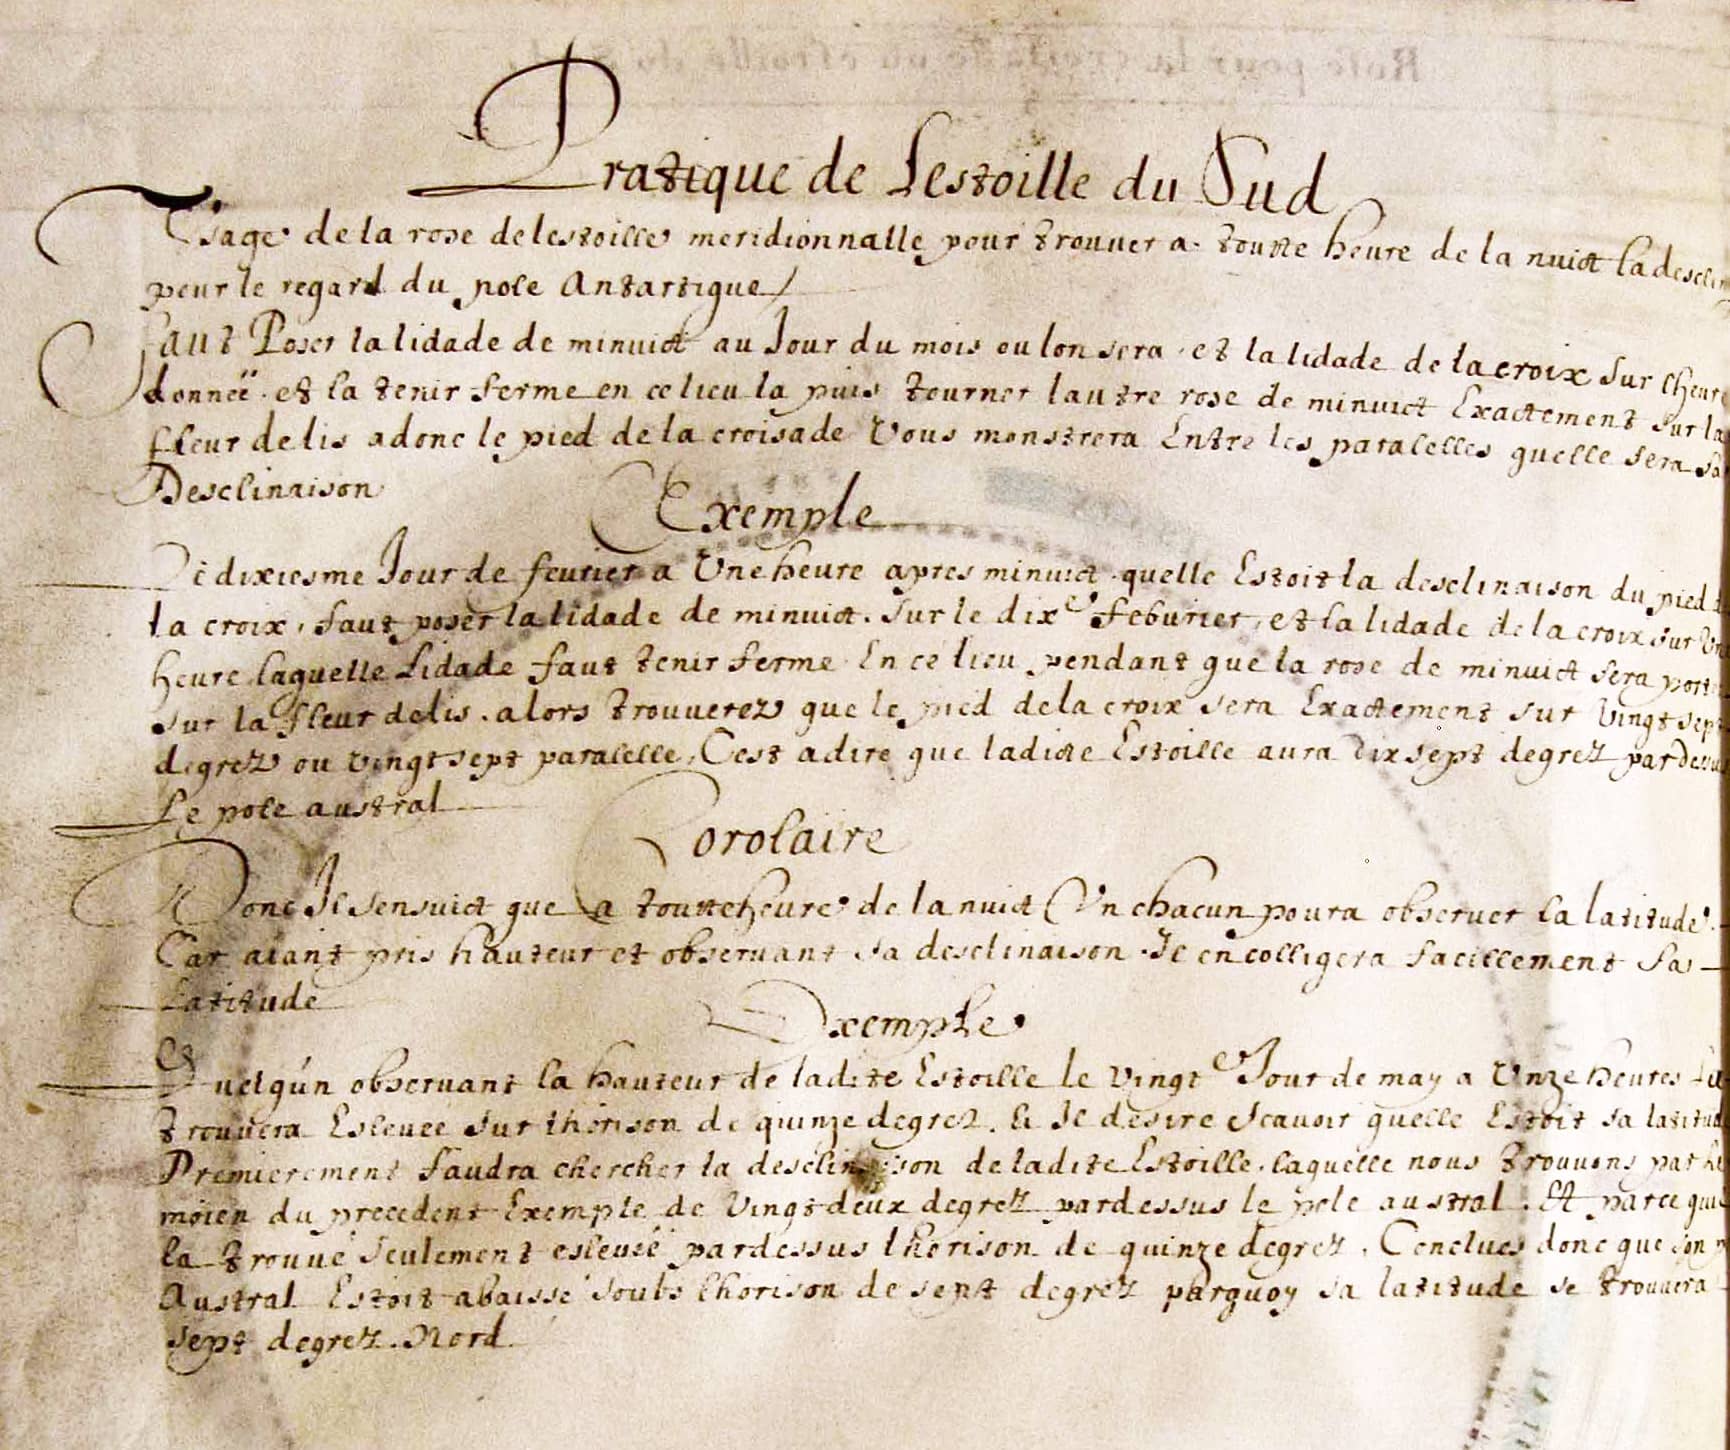 Pratique de Lestoille du Sud
Vsage de la rose de lestoille meridionnalle pour trouuer a toutte heure de la nuict la desclin
pour le regard du pole Antartique
Faut Poser lalidade de minuict au Jour du mois ou lon sera et lalidade de la croix sur lheure
donneë et la tenir ferme en ce lieu la puis tourner lautre rose de minuict Exactement sur la
fleur de lis adonc le pied de la croisade Vous monstrera Entre les paralelles quelle sera sa
Desclinaison
Exemple
Le dixiesme Jour de feurier a Vne heure apres minuict quelle Estoit la desclinaison du pied
la croix, faut poser lalidade de minuict. sur le dixe feburier, et lalidade de la croix sur Vne
heure laquelle Lidade faut tenir ferme En ce lieu pendant que la rose de minuict sera porte
sur la fleur de lis. alors trouuerez que le pied de la croix sera Exactement sur Vingt sept
degrez ou vingt sept paralelle, Cest a dire que ladicte Estoille aura dix sept degrez pardessus
Le pole austral
Corolaire
Donc Il sensuict que a toutte heure de la nuict Vn chacun poura obseruer la latitude.
Car aiant pris hauteur et obseruant sa desclinaison. Il en colligera facillement sa
Latitude
Exemple
Quelqún obseruant la hauteur de ladite Estoille le vingte Jour de may a Vnze heures
trouuera Esleuee sur lhorison de quinze degrez. & Il desire scauoir quelle Estoit sa latitude
Premierement faudra chercher la desclinaison de ladite Estoille. laquelle nous trouuons par le
moien du precedent Exemple de Vingt deux degrez pardessus le pole austral. Et parce qui
la trouué seulement esleueé pardessus lhorison de quinze degrez. Conclues donc que son p
Austral Estoit abaissé soubs lhorison de sept degrez parquoy sa latitude se trouuera
sept degrez. Nord.